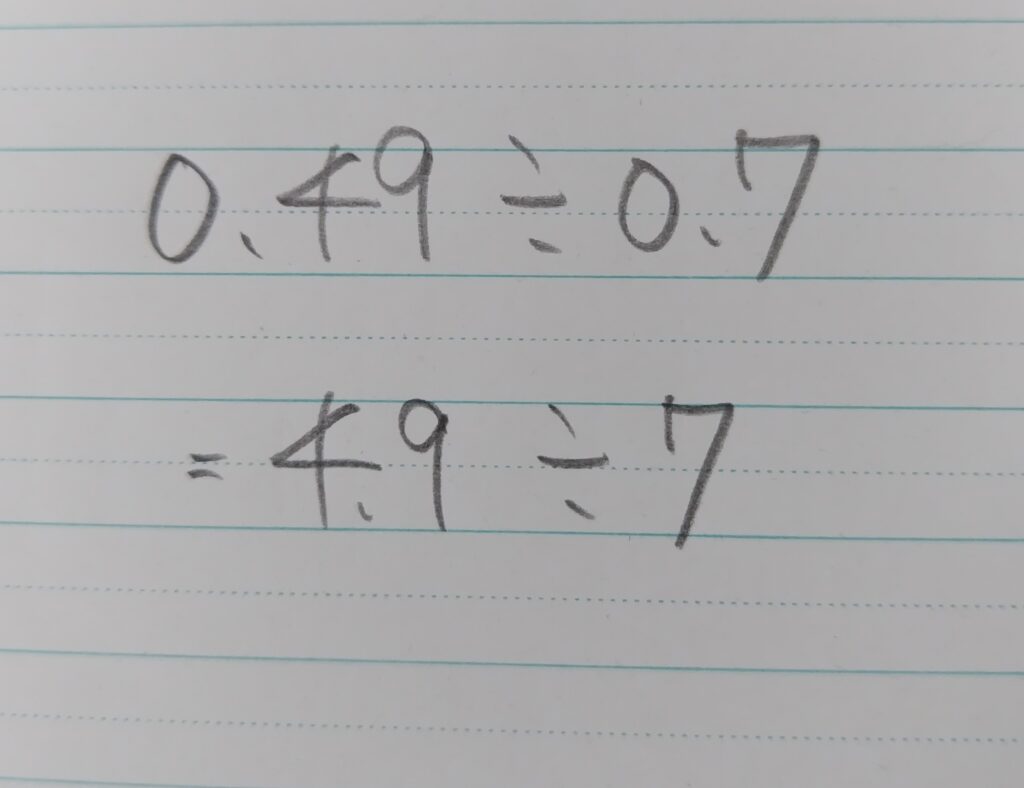 0.49 ÷ 0.7
= 4.9 ÷ 7